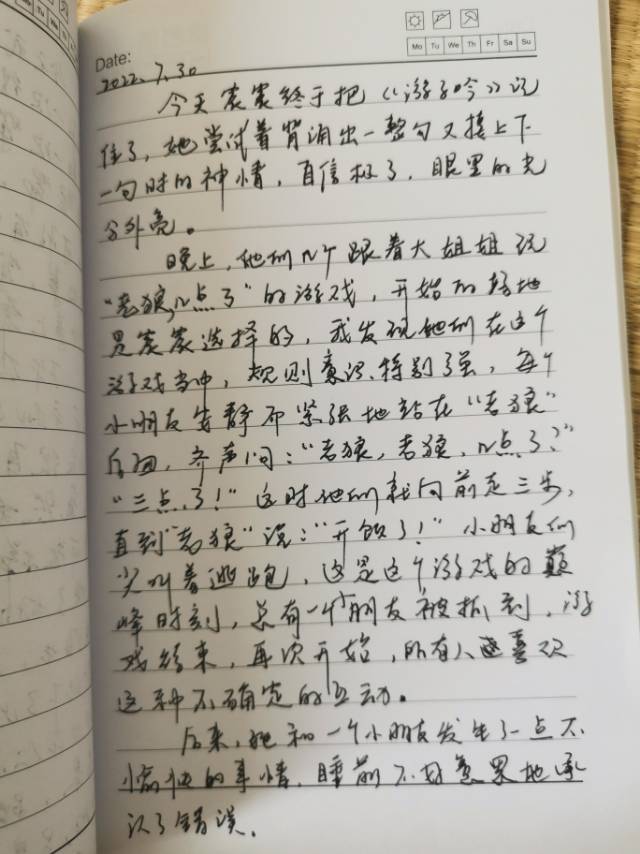 Date:
Mo Tu We Th Fr Sa Su
2022.7.30
今天宸宸终于把《游子吟》记
住了,她尝试着背诵出一整句又接上下
一句时的神情,自信极了,眼里的光
分外亮。
晚上,他们几个跟着大姐姐玩
“老狼,几点了”的游戏,开始的场地
是宸宸选择的,我发现他们在这个
游戏当中,规则意识特别强,每个
小朋友安静而紧张地站在“老狼”
后面,齐声问:“老狼,老狼,几点了?”
“三点了!”这时他们就向前走三步,
直到“老狼”说:“开饭了!”小朋友们
尖叫着逃跑,这是这个游戏的巅
峰时刻,总有一个小朋友被抓到,游
戏结束,再次开始,所有人喜欢
这种不确定的互动。
后来,她和一个小朋友发生了一点不
愉快的事情,睡前不好意思地承
认了错误。